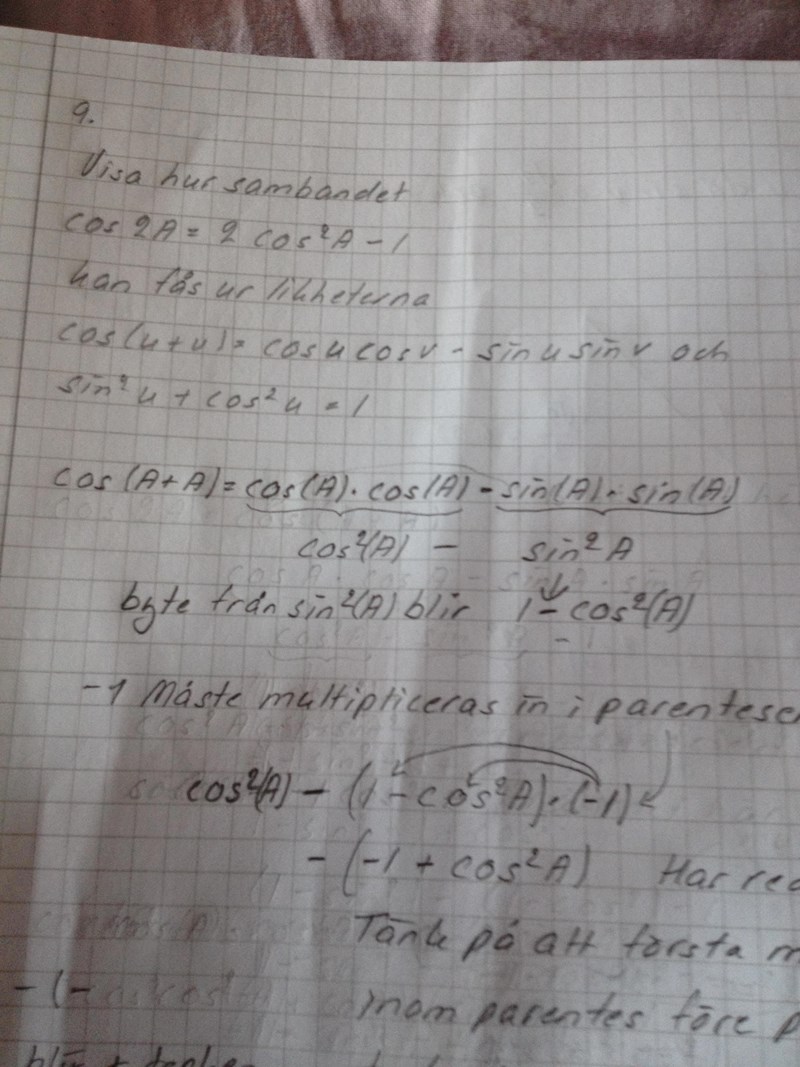 9.
Visa hur sambandet
cos 2A = 2 cos²A - 1
kan fås ur likheterna
cos(u+u) = cos u cos v - sin u sin v och
sin²u + cos²u = 1
cos (A+A) = cos(A) · cos(A) - sin(A) · sin(A)
cos²(A) - sin²A
byte från sin²(A) blir 1 - cos²(A)
-1 Måste multipliceras in i parentesen
cos²(A) - (1 - cos²A) · (-1)
- (-1 + cos²A) Har
Tänk på att första
- (-
inom parentes före
blir +